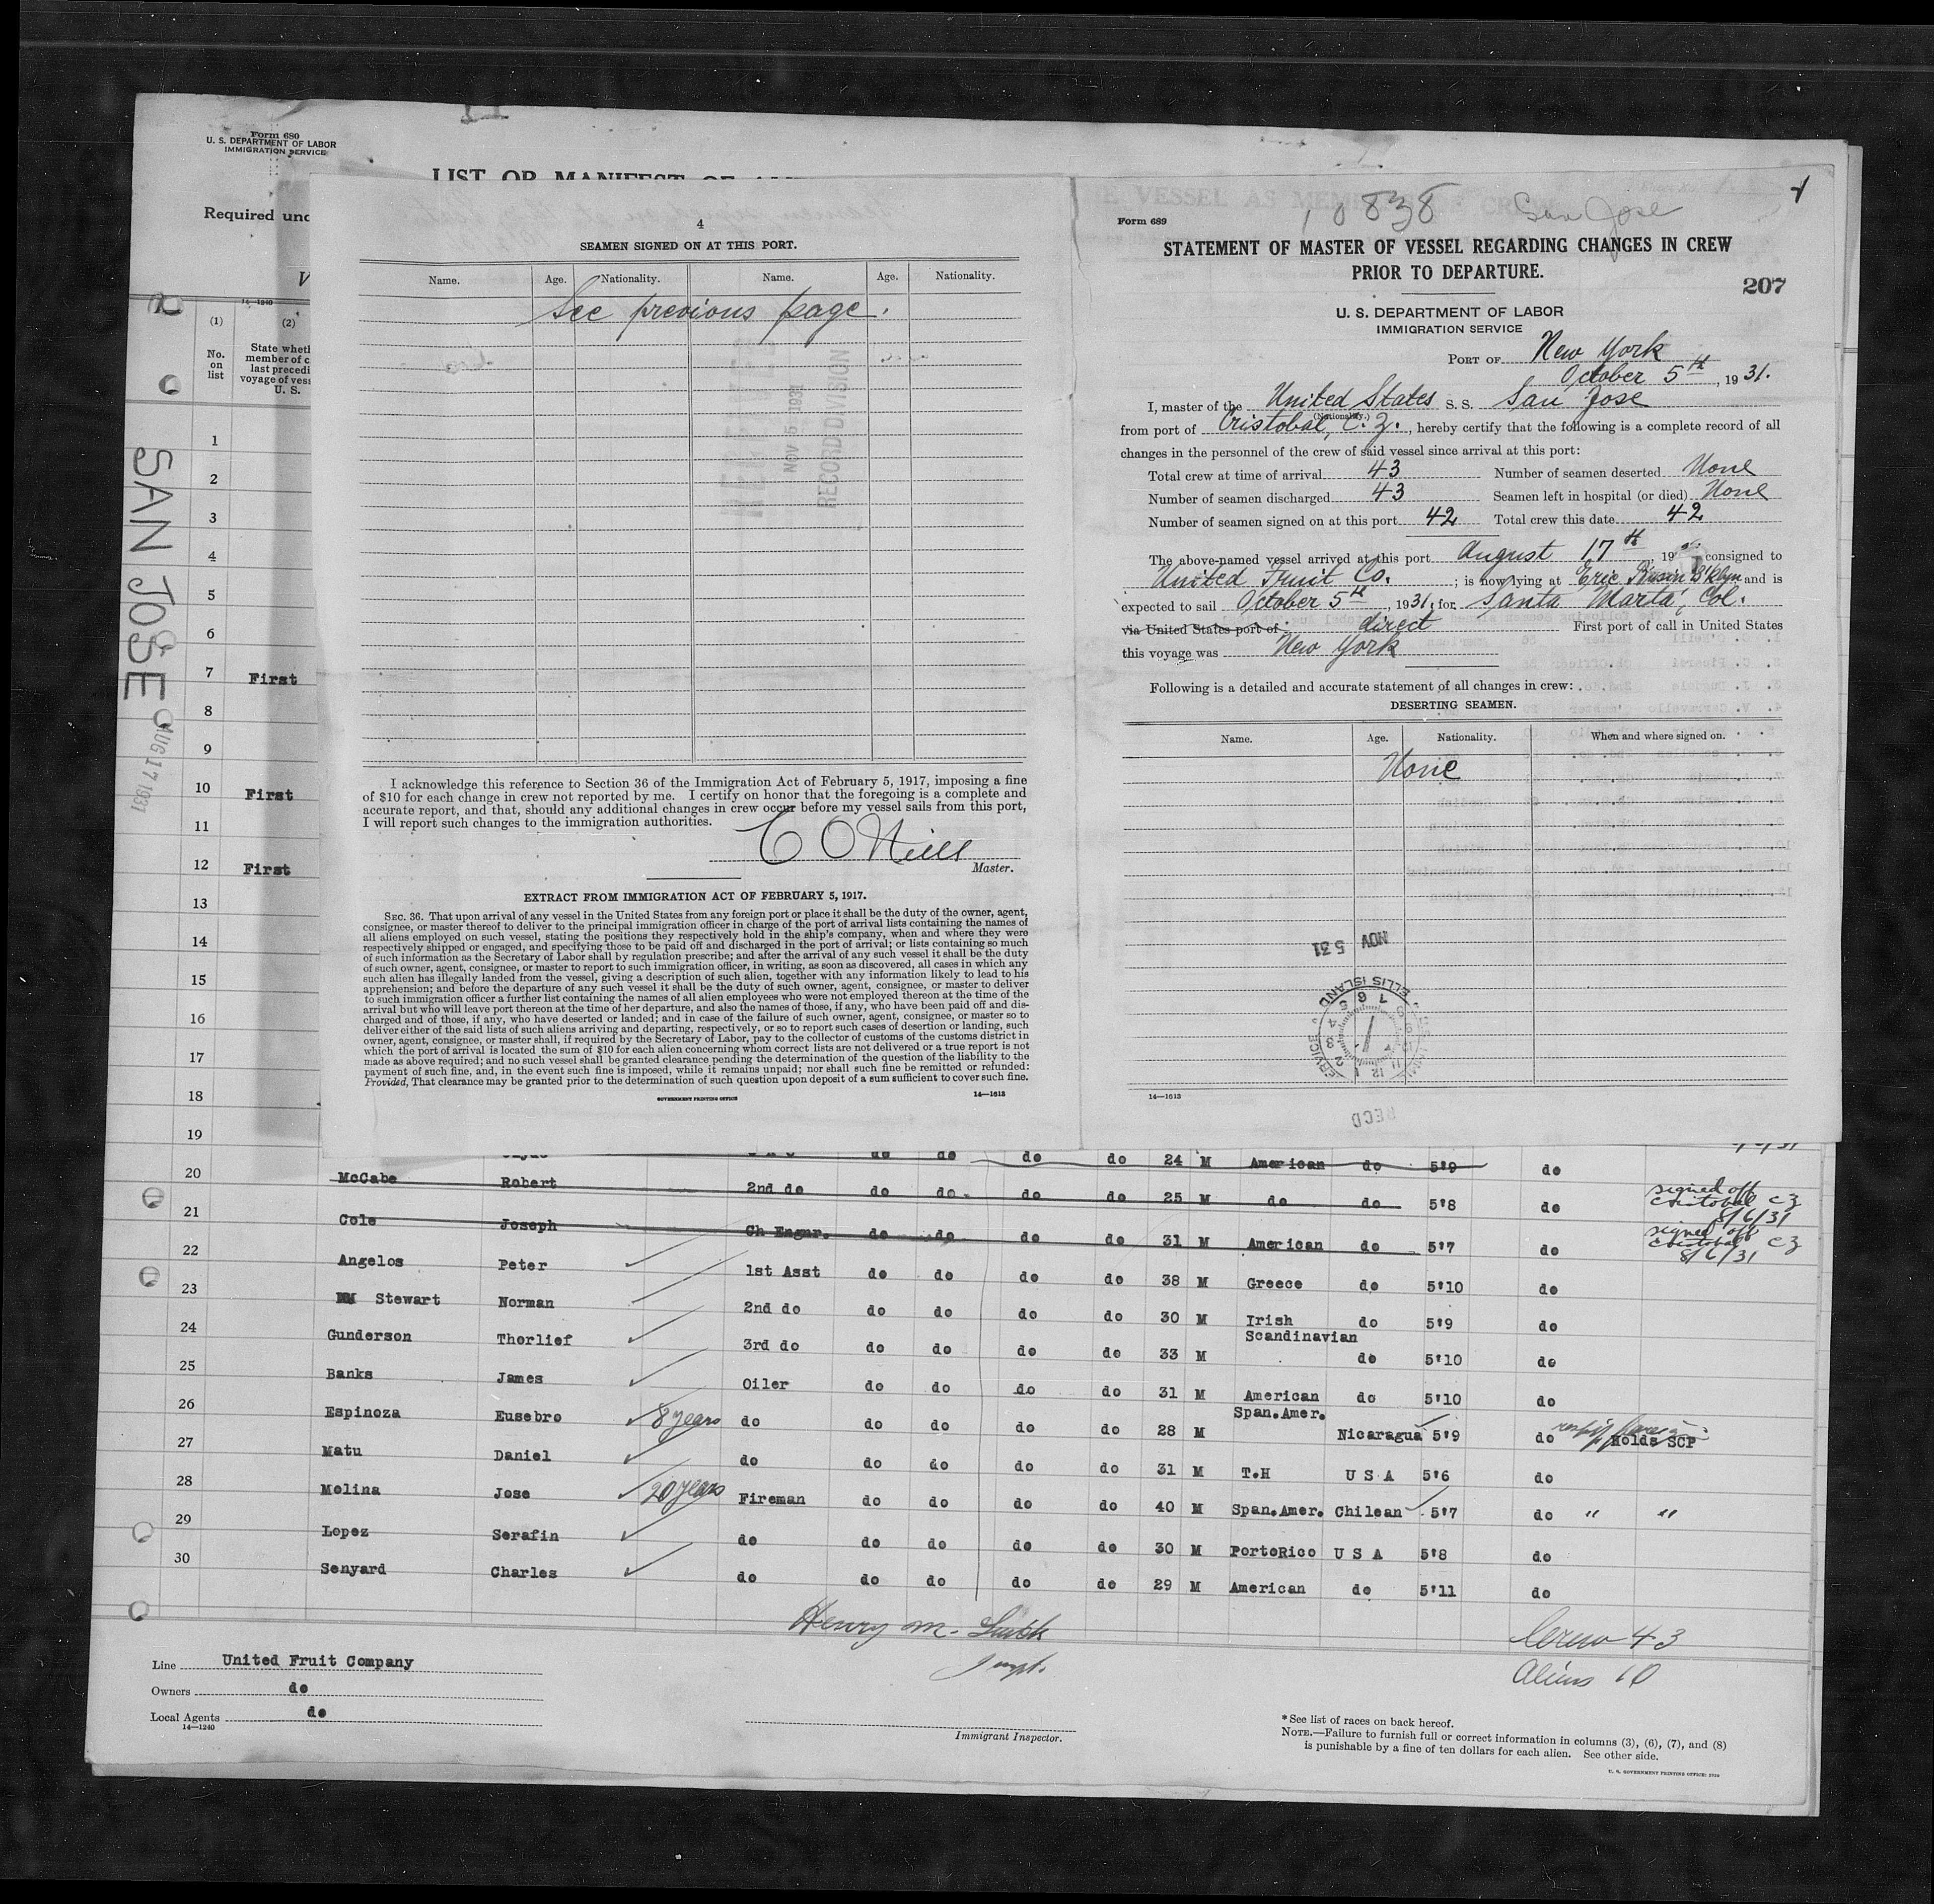 Form 680
U. S. DEPARTMENT OF LABOR
IMMIGRATION SERVICE
LIST OR MANIFEST OF
Required und
14—1240
(1)
No.
on
list
(2)
State wheth
member of c
last precedi
voyage of vess
U. S.
SAN JOSE AUG 17 1931
1
2
3
4
5
6
7 First
8
9
10 First
11
12 First
13
14
15
16
17
18
19
4
SEAMEN SIGNED ON AT THIS PORT.
Name. Age. Nationality. Name. Age. Nationality.
See previous page.
NOV 5 1931
RECORD DIVISION
I acknowledge this reference to Section 36 of the Immigration Act of February 5, 1917, imposing a fine
of $10 for each change in crew not reported by me. I certify on honor that the foregoing is a complete and
accurate report, and that, should any additional changes in crew occur before my vessel sails from this port,
I will report such changes to the immigration authorities.
C O'Neill
Master.
EXTRACT FROM IMMIGRATION ACT OF FEBRUARY 5, 1917.
SEC. 36. That upon arrival of any vessel in the United States from any foreign port or place it shall be the duty of the owner, agent,
consignee, or master thereof to deliver to the principal immigration officer in charge of the port of arrival lists containing the names of
all aliens employed on such vessel, stating the positions they respectively hold in the ship's company, when and where they were
respectively shipped or engaged, and specifying those to be paid off and discharged in the port of arrival; or lists containing so much
of such information as the Secretary of Labor shall by regulation prescribe; and after the arrival of any such vessel it shall be the duty
of such owner, agent, consignee, or master to report to such immigration officer, in writing, as soon as discovered, all cases in which any
such alien has illegally landed from the vessel, giving a description of such alien, together with any information likely to lead to his
apprehension; and before the departure of any such vessel it shall be the duty of such owner, agent, consignee, or master to deliver
to such immigration officer a further list containing the names of all alien employees who were not employed thereon at the time of the
arrival but who will leave port thereon at the time of her departure, and also the names of those, if any, who have been paid off and dis-
charged and of those, if any, who have deserted or landed; and in case of the failure of such owner, agent, consignee, or master so to
deliver either of the said lists of such aliens arriving and departing, respectively, or so to report such cases of desertion or landing, such
owner, agent, consignee, or master shall, if required by the Secretary of Labor, pay to the collector of customs of the customs district in
which the port of arrival is located the sum of $10 for each alien concerning whom correct lists are not delivered or a true report is not
made as above required; and no such vessel shall be granted clearance pending the determination of the question of the liability to the
payment of such fine, and, in the event such fine is imposed, while it remains unpaid; nor shall such fine be remitted or refunded:
Provided, That clearance may be granted prior to the determination of such question upon deposit of a sum sufficient to cover such fine.
GOVERNMENT PRINTING OFFICE 14—1613
10838 San Jose
Form 689
STATEMENT OF MASTER OF VESSEL REGARDING CHANGES IN CREW
PRIOR TO DEPARTURE.
207
U. S. DEPARTMENT OF LABOR
IMMIGRATION SERVICE
PORT OF New York
October 5th, 1931.
I, master of the United States S. S. San Jose
(Nationality.)
from port of Cristobal, C. Z., hereby certify that the following is a complete record of all
changes in the personnel of the crew of said vessel since arrival at this port:
Total crew at time of arrival 43 Number of seamen deserted None
Number of seamen discharged 43 Seamen left in hospital (or died) None
Number of seamen signed on at this port 42 Total crew this date 42
The above-named vessel arrived at this port August 17th, 19 consigned to
United Fruit Co.; is now lying at Erie Basin B'klyn and is
expected to sail October 5th, 1931, for Santa Marta, Col.
via United States port of direct First port of call in United States
this voyage was New York
Following is a detailed and accurate statement of all changes in crew:
DESERTING SEAMEN.
Name. Age. Nationality. When and where signed on.
None
NOV 5 31
ELLIS ISLAND
RECD
14—1613
do do do do 24 M American do 5'9 do
20 McCabe Robert 2nd do do do do do 25 M do do 5'8 do signed off Cristobal C Z 8/6/31
21 Cole Joseph Ch Engnr. do do do do 31 M American do 5'7 do signed off Cristobal C Z 8/6/31
22 Angelos Peter 1st Asst do do do do 38 M Greece do 5'10 do
23 Stewart Norman 2nd do do do do do 30 M Irish do 5'9 do
24 Gunderson Thorlief 3rd do do do do do 33 M Scandinavian do 5'10 do
25 Banks James Oiler do do do do 31 M American do 5'10 do
26 Espinoza Eusebro 8 years do do do do do 28 M Span.Amer. Nicaragua 5'9 do Holds SCP
27 Matu Daniel do do do do do 31 M T.H U S A 5'6 do
28 Molina Jose 20 years Fireman do do do do 40 M Span.Amer. Chilean 5'7 do " "
29 Lopez Serafin do do do do do 30 M PortoRico U S A 5'8 do
30 Senyard Charles do do do do do 29 M American do 5'11 do
Henry M. Smith
Inspt.
Crew 43
Aliens 10
Line United Fruit Company
Owners do
Local Agents do
14—1240
Immigrant Inspector.
* See list of races on back hereof.
NOTE.—Failure to furnish full or correct information in columns (3), (6), (7), and (8)
is punishable by a fine of ten dollars for each alien. See other side.
U. S. GOVERNMENT PRINTING OFFICE: 1930